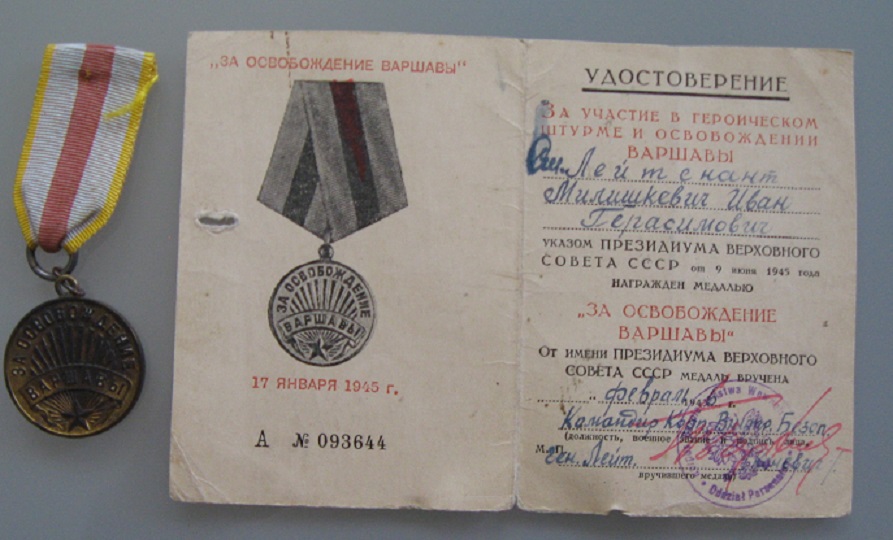 ЗА ОСВОБОЖДЕНИЕ
ВАРШАВЫ
„ЗА ОСВОБОЖДЕНИЕ ВАРШАВЫ"
ЗА ОСВОБОЖДЕНИЕ
ВАРШАВЫ
17 ЯНВАРЯ 1945 г.
А № 093644
УДОСТОВЕРЕНИЕ
ЗА УЧАСТИЕ В ГЕРОИЧЕСКОМ
ШТУРМЕ И ОСВОБОЖДЕНИИ
ВАРШАВЫ
Лейтенант
Милишкевич Иван
Герасимович
УКАЗОМ ПРЕЗИДИУМА ВЕРХОВНОГО
СОВЕТА СССР от 9 июня 1945 года
НАГРАЖДЕН МЕДАЛЬЮ
„ЗА ОСВОБОЖДЕНИЕ
ВАРШАВЫ"
От имени ПРЕЗИДИУМА ВЕРХОВНОГО
СОВЕТА СССР МЕДАЛЬ ВРУЧЕНА
февраль 194 г.
Командир Корп. Безоп.
(должность, военное звание и подпись лица,
М. П.
Ген. Лейт.
вручившего медаль)
Oddział